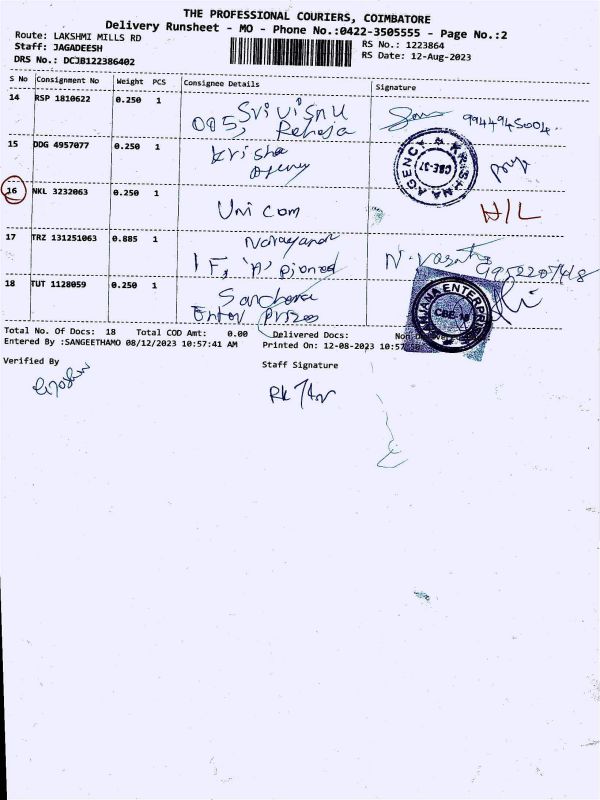 THE PROFESSIONAL COURIERS, COIMBATORE
Delivery Runsheet - MO - Phone No.:0422-3505555 - Page No.:2
Route: LAKSHMI MILLS RD
Staff: JAGADEESH
DRS No.: DCJB122386402
RS No.: 1223864
RS Date: 12-Aug-2023
S No Consignment No Weight PCS Consignee Details Signature
14 RSP 1810622 0.250 1 Sri Visnu
095, Raheja
9944945004
15 DDG 4957077 0.250 1 Krisha
Agency
KRISHNA AGENCY
CBE-37
16 NKL 3232063 0.250 1 Uni com H/L
17 TRZ 131251063 0.885 1 Narayanan
1F, 'A' Pioneed
18 TUT 1128059 0.250 1 Sanchana
Enter Prizes
ENTERPRISE
Total No. Of Docs: 18 Total COD Amt: 0.00 Delivered Docs:
Entered By :SANGEETHAMO 08/12/2023 10:57:41 AM Printed On: 12-08-2023
Verified By
Staff Signature